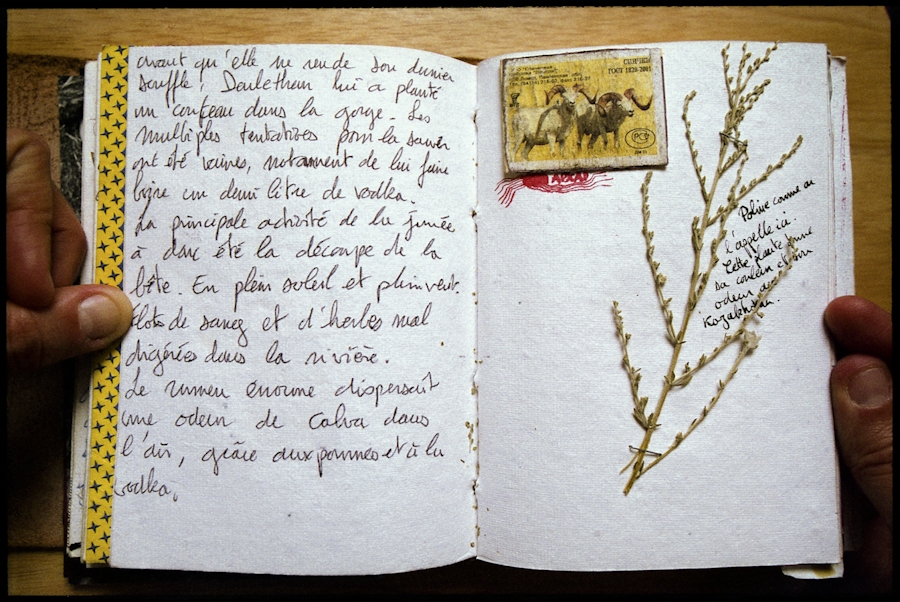 avant qu'elle ne rende son dernier
souffle, Dauletkhan lui a planté
un couteau dans la gorge. Les
multiples tentatives pour la sauver
ont été vaines, notamment de lui faire
boire un demi litre de vodka.
La principale activité de la journée
à donc été la découpe de la
bête. En plein soleil et plein vent.
Flots de sang et d'herbes mal
digérées dans la rivière.
Le rumen énorme dispersait
une odeur de Calva dans
l'air, grâce aux pommes et à la
vodka.
ГОСТ 1820-2001
РСТ
Poline comme on
l'appelle ici.
Cette plante donne
sa couleur et son
odeur au
Kazakhstan.